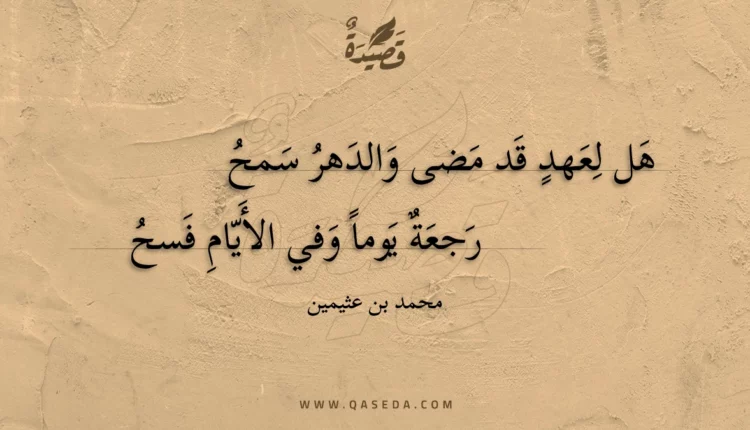 قَصِيدَةٌ
هَل لِعَهدٍ قَد مَضى وَالدَهرُ سَمحُ
رَجعَةٌ يَوماً وَفي الأَيّامِ فَسحُ
محمد بن عثيمين
WWW.QASEDA.COM